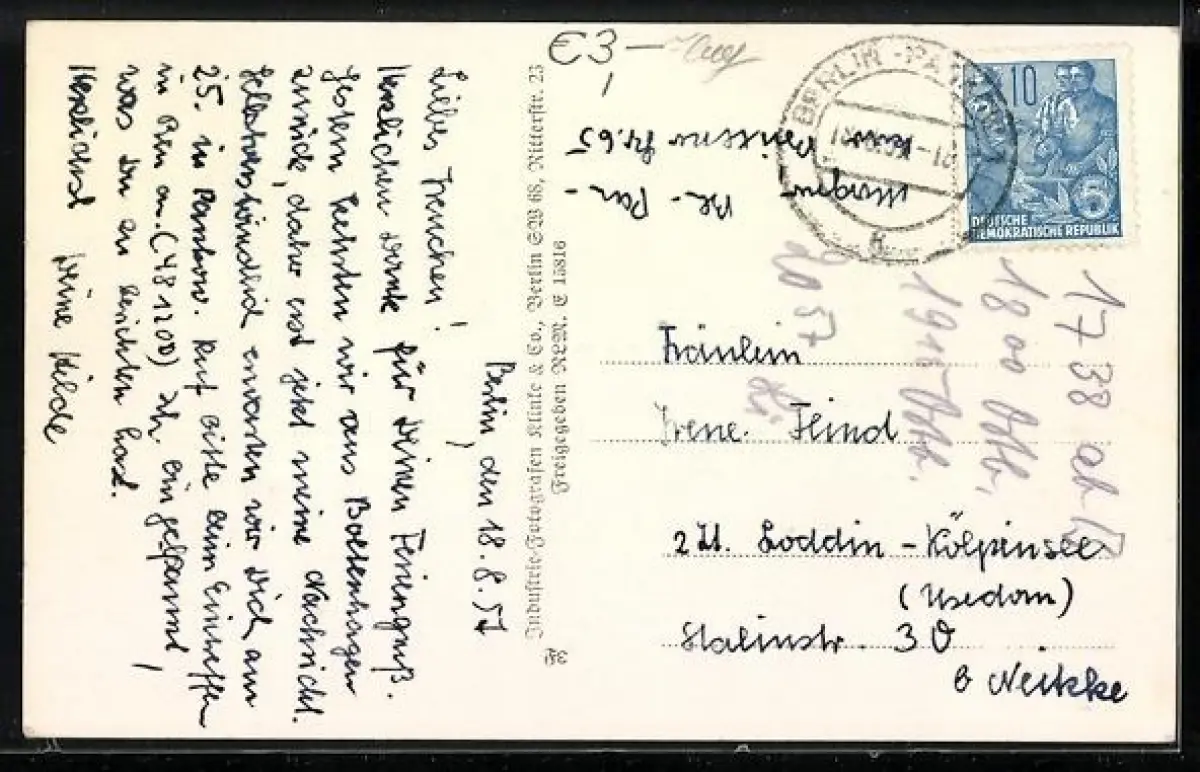 €3,-
Berlin, den 18.8.57
Liebes Irenchen!
Herzlichen Dank für Deinen Feriengruß.
Gestern kehrten wir aus Boltenhagen
zurück, daher erst jetzt meine Nachricht.
Selbstverständlich erwarten wir Dich am
25. in Pankow. Ruf bitte beim Eintreffen
in Bln an. (481200) Ich bin gespannt,
was Du zu berichten hast.
Herzlichst Deine Hilde
Industrie-Fotografen Klinke & Co., Berlin SW 68, Ritterstr. 23
Freigegeben RLM. E 15816
BERLIN-PANKOW 1
10
5
DEUTSCHE
DEMOKRATISCHE REPUBLIK
Bln.-Pan-
Str. 65
Fräulein
Irene Flind
z Zt. Loddin-Kölpinsee
(Usedom)
Stalinstr. 30
b Neitzke
17 38 ab
18 00
19
20 57